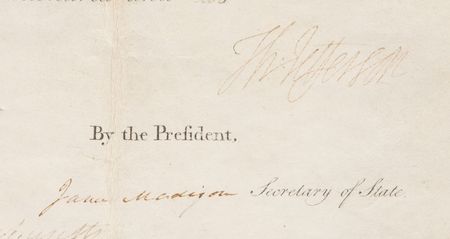 Th Jefferson
By the Preſident,
James Madison Secretary of State